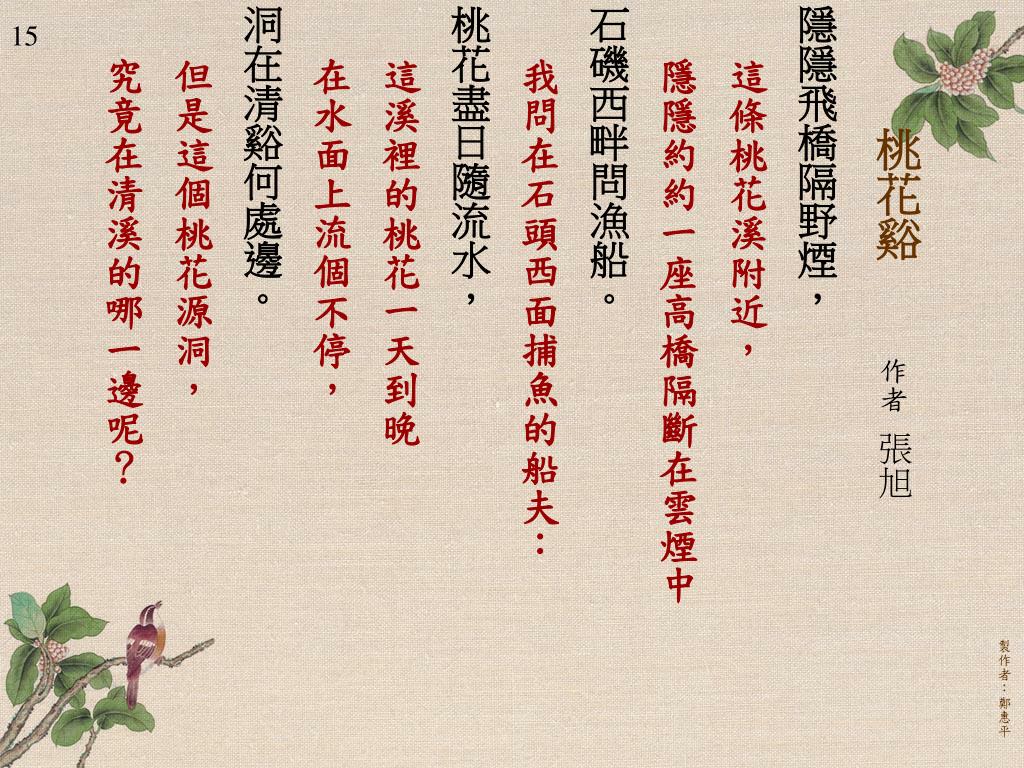 桃花谿
作者 張旭
隱隱飛橋隔野煙，
這條桃花溪附近，
隱隱約約一座高橋隔斷在雲煙中
石磯西畔問漁船。
我問在石頭西面捕魚的船夫：
桃花盡日隨流水，
這溪裡的桃花一天到晚
在水面上流個不停，
洞在清谿何處邊。
但是這個桃花源洞，
究竟在清溪的哪一邊呢？
製作者：鄭惠平
15